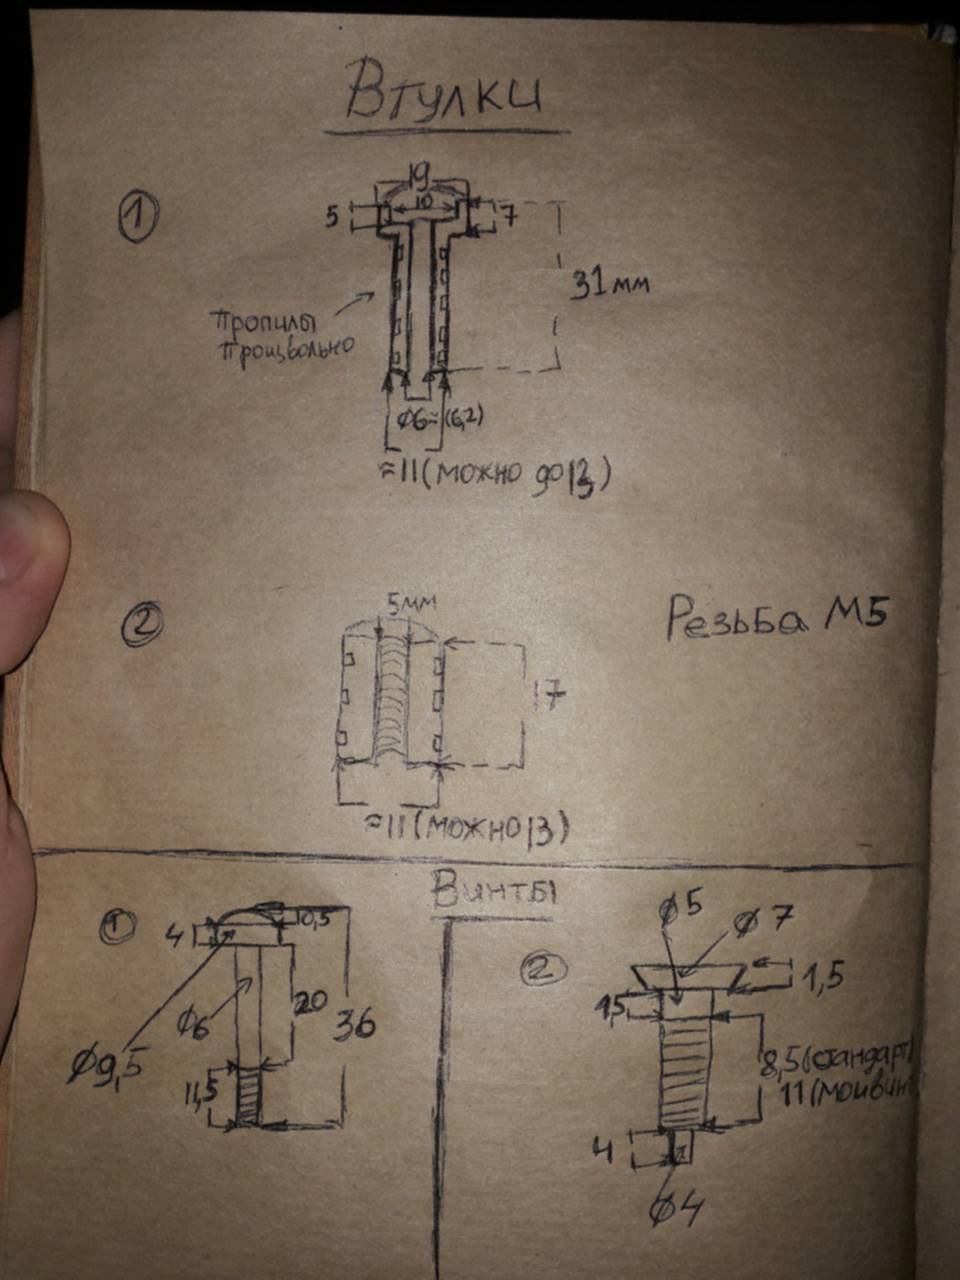 Втулки
①
19
10
5
7
31мм
Пропилы
Произвольно
⌀6≈(6,2)
≈11(можно до 13)
②
5мм
Резьба М5
17
≈11(можно 13)
Винты
①
4
0,5
20
36
⌀6
⌀9,5
11,5
②
⌀5
⌀7
1,5
1,5
8,5(стандарт)
11(мой винт
4
⌀4